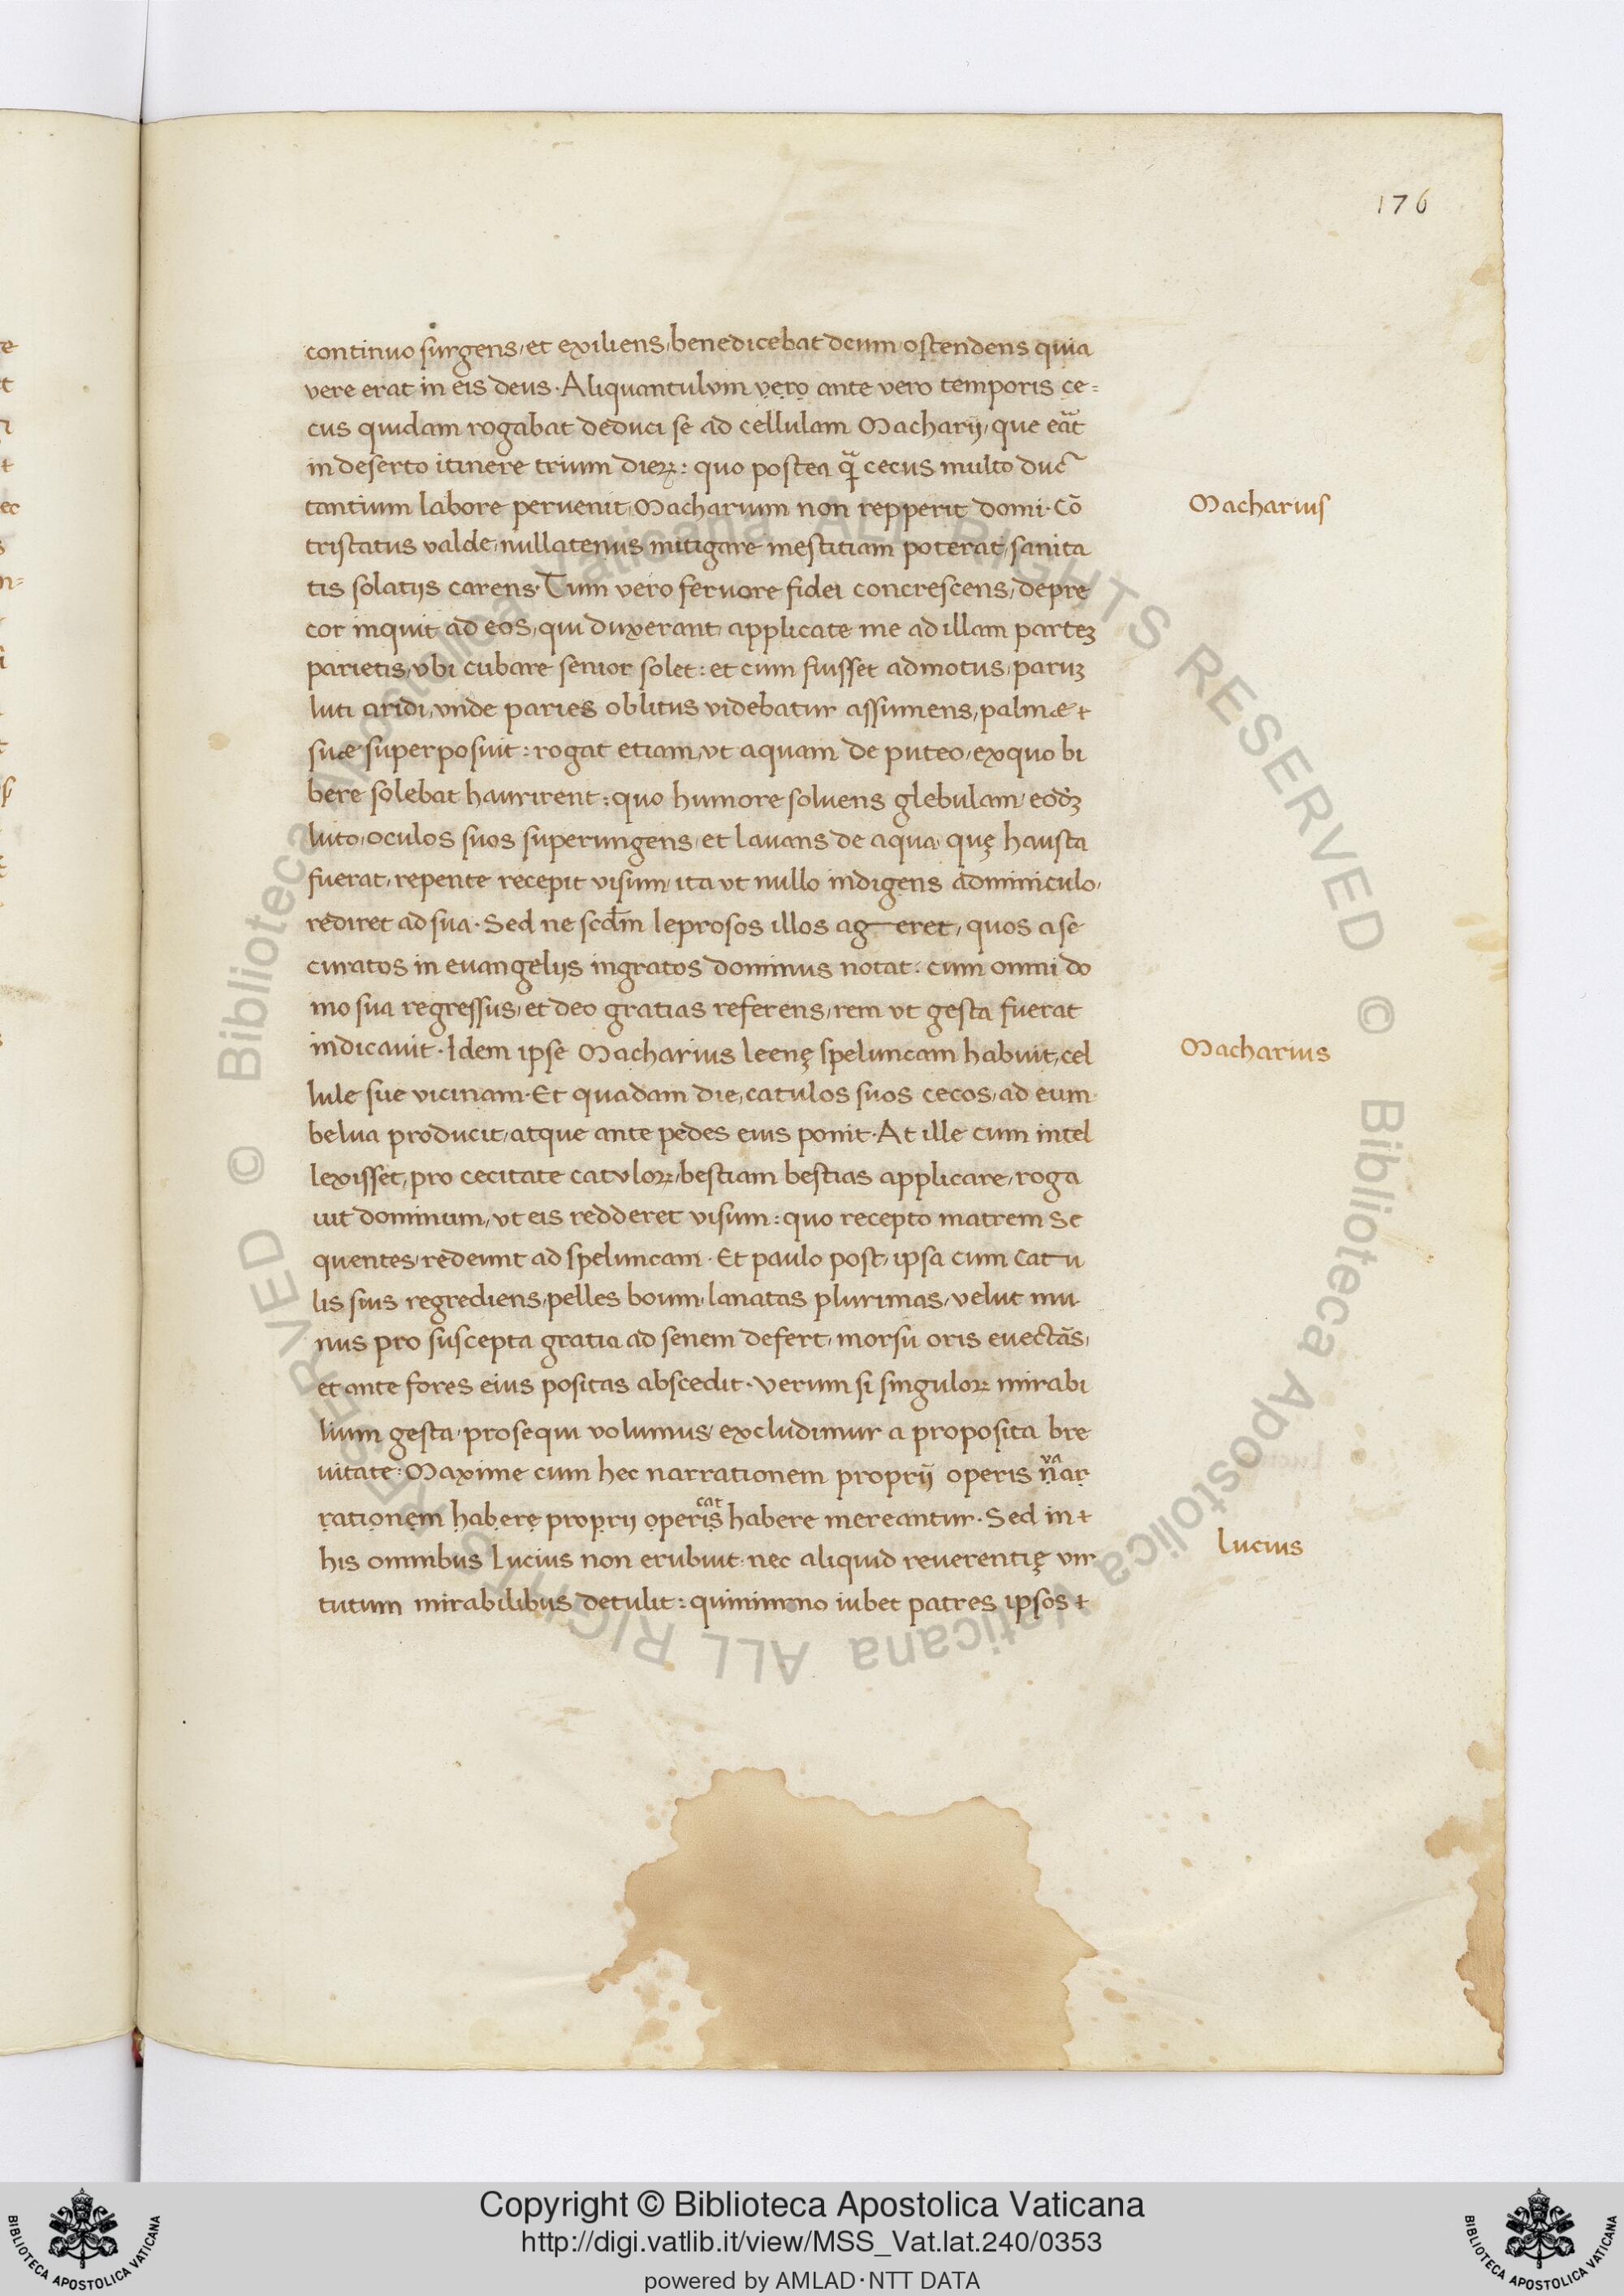 176
continuo surgens, et exiliens, benedicebat deum ostendens quia
vere erat in eis deus. Aliquantulum vero ante vero temporis ce=
cus quidam rogabat deduci se ad cellulam Macharij, que eat
in deserto itinere trium dieꝝ: quo postea q̃ cecus multo duc̃
tantium labore peruenit, Macharium non repperit domi. Cō
Macharius
tristatus valde, nullatenus mitigare mestitiam poterat, sanita
tis solatijs carens. Tum vero feruore fidei concrescens, depre
cor inquit ad eos, qui duxerant, applicate me ad illam parteꝫ
parietis, vbi cubare senior solet: et cum fuisset admotus, paruꝫ
luti aridi, vnde paries oblitus videbatur assumens, palmæ
suæ superposuit: rogat etiam, vt aquam de puteo, exquo bi
bere solebat haurirent: quo humore soluens glebulam, eodꝫ
luto, oculos suos superungens, et lauans de aqua, quę hausta
fuerat, repente recepit visum, ita vt nullo indigens adminiculo,
rediret ad sua. Sed ne scdm̄ leprosos illos ageret, quos a se
curatos in euangelijs ingratos dominus notat: cum omni do
mo sua regressus, et deo gratias referens, rem vt gesta fuerat
indicauit. Idem ipse Macharius leenę speluncam habuit, cel
Macharius
lule sue vicinam. Et quadam die, catulos suos cecos, ad eum
belua producit, atque ante pedes eius ponit. At ille cum intel
lexisset, pro cecitate catuloꝝ, bestiam bestias applicare, roga
uit dominum, vt eis redderet visum: quo recepto matrem se
quentes, redeunt ad speluncam. Et paulo post, ipsa cum catu
lis suis regrediens, pelles boum, lanatas plurimas, velut mu
nus pro suscepta gratia ad senem defert, morsu oris euectãs,
et ante fores eius positas abscedit. Verum si singuloꝝ mirabi
lium gesta, prosequi volumus, excludimur a proposita bre
uitate. Maxime cum hec narrationem proprij operis nar
va
rationem habere proprij operis habere mereantur. Sed in
cat
his omnibus Lucius non erubuit, nec aliquid reuerentię vir
Lucius
tutum mirabilibus detulit: quinimmo iubet patres ipsos
© Biblioteca Apostolica Vaticana ALL RIGHTS RESERVED © Biblioteca Apostolica Vaticana ALL RIGHTS RESERVED
BIBLIOTECA APOSTOLICA VATICANA
Copyright © Biblioteca Apostolica Vaticana
http://digi.vatlib.it/view/MSS_Vat.lat.240/0353
powered by AMLAD·NTT DATA
BIBLIOTECA APOSTOLICA VATICANA